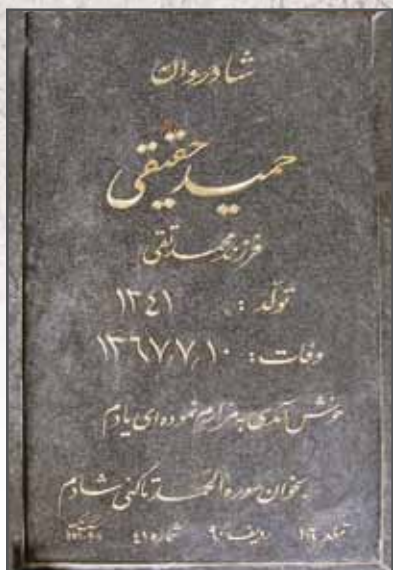 شادروان
حمید حقیقی
فرزند محمد تقی
تولد : ۱۳٤۱
وفات : ۱۳٦۷٫۷٫۱۰
خوش آمدی به مزارم نموده ای یادم
بخوان سوره الحمد تا کنی شادم
قطعه ۱۱٦ ردیف ۹۰ شماره ٤۱